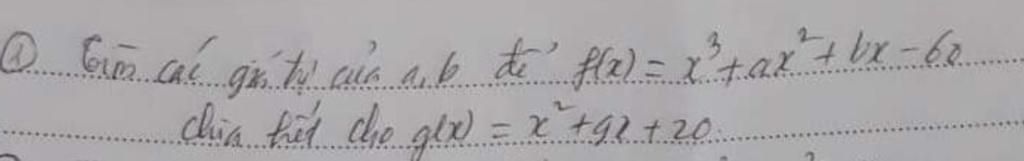 ① Tìm các giá trị của a, b để f(x) = x³ + ax² + bx - 60
chia hết cho g(x) = x² + 9x + 20